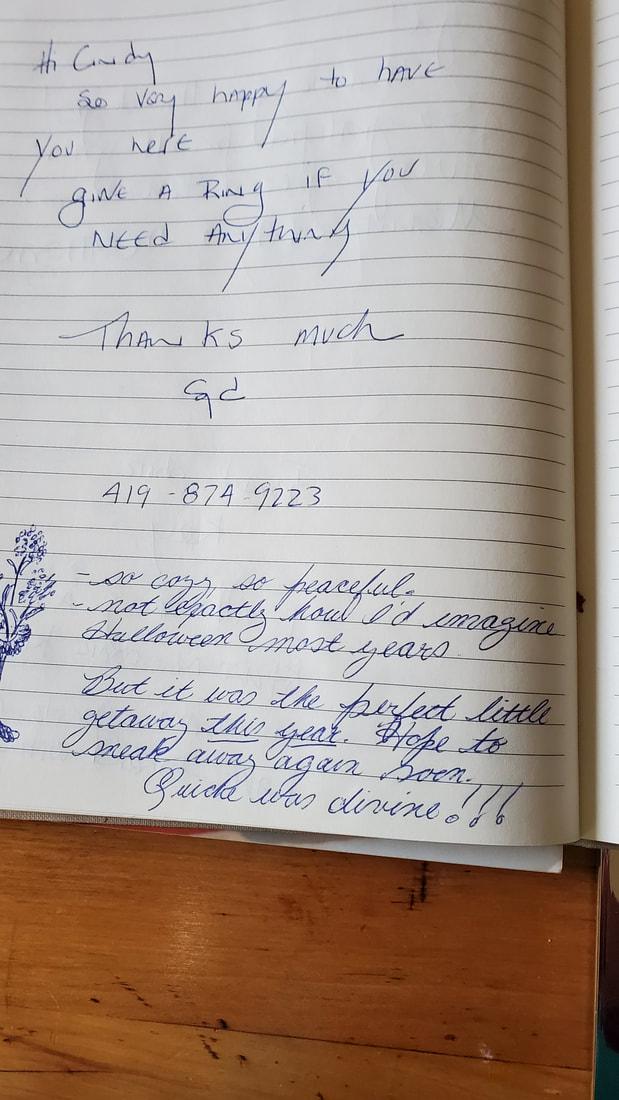 Hi Cindy
so very happy to have
you here
give a Ring if you
need anything
Thanks much
419-874-9223
-so cozy so peaceful.
-not exactly how I'd imagine
Halloween most years.
But it was the perfect little
getaway this year. Hope to
sneak away again soon.
Quiche was divine!!!